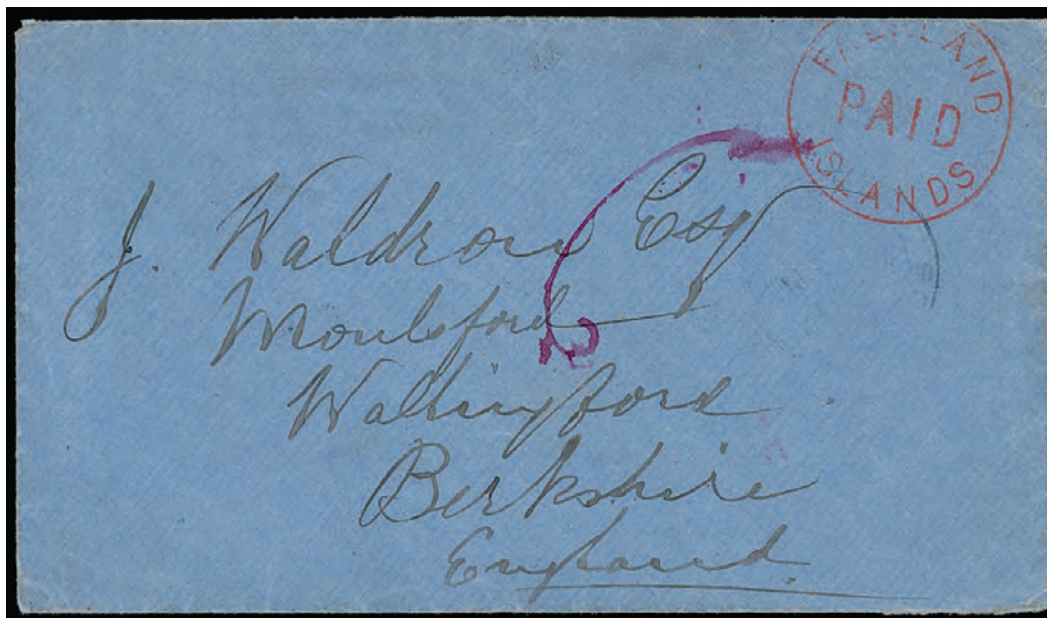 FALKLAND
PAID
ISLANDS
J. Waldron Esq
Moulsford
Wallingford
Berkshire
England